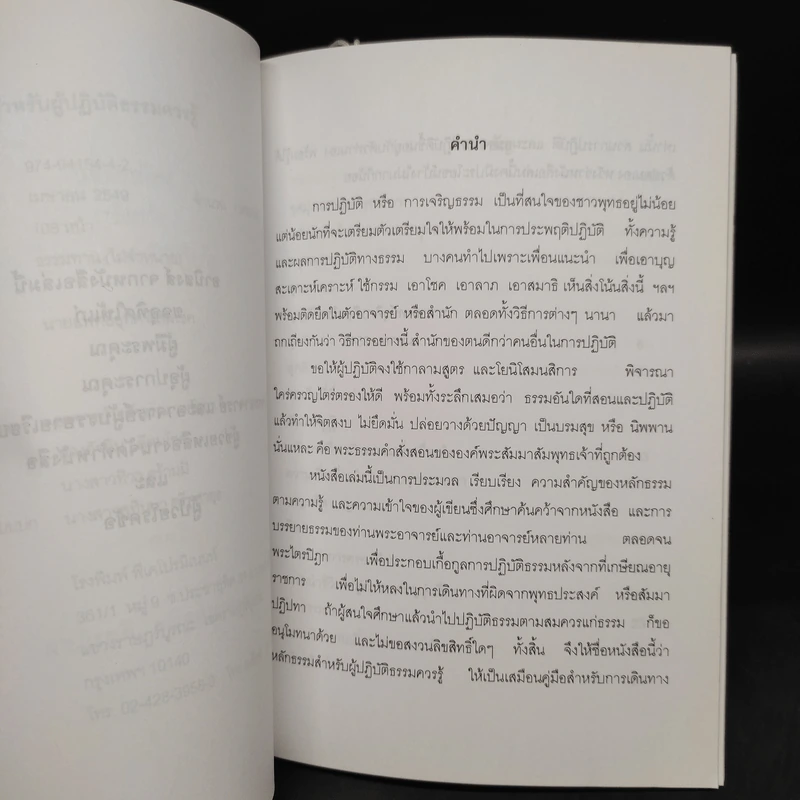 คำนำ
การปฏิบัติ หรือ การเจริญธรรม เป็นที่สนใจของชาวพุทธอยู่ไม่น้อย
แต่น้อยนักที่จะเตรียมตัวเตรียมใจให้พร้อมในการประพฤติปฏิบัติ ทั้งความรู้
และผลการปฏิบัติทางธรรม บางคนทำไปเพราะเพื่อนแนะนำ เพื่อเอาบุญ
สะเดาะห์เคราะห์ ใช้กรรม เอาโชค เอาลาภ เอาสมาธิ เห็นสิ่งโน้นสิ่งนี้ ฯลฯ
พร้อมติดยึดในตัวอาจารย์ หรือสำนัก ตลอดทั้งวิธีการต่างๆ นานา แล้วมา
ถกเถียงกันว่า วิธีการอย่างนี้ สำนักของตนดีกว่าคนอื่นในการปฏิบัติ
ขอให้ผู้ปฏิบัติจงใช้กาลามสูตร และโยนิโสมนสิการ พิจารณา
ใคร่ครวญไตร่ตรองให้ดี พร้อมทั้งระลึกเสมอว่า ธรรมอันใดที่สอนและปฏิบัติ
แล้วทำให้จิตสงบ ไม่ยึดมั่น ปล่อยวางด้วยปัญญา เป็นบรมสุข หรือ นิพพาน
นั่นแหละ คือ พระธรรมคำสั่งสอนขององค์พระสัมมาสัมพุทธเจ้าที่ถูกต้อง
หนังสือเล่มนี้เป็นการประมวล เรียบเรียง ความสำคัญของหลักธรรม
ตามความรู้ และความเข้าใจของผู้เขียนซึ่งศึกษาค้นคว้าจากหนังสือ และการ
บรรยายธรรมของท่านพระอาจารย์และท่านอาจารย์หลายท่าน ตลอดจน
พระไตรปิฎก เพื่อประกอบเกื้อกูลการปฏิบัติธรรมหลังจากที่เกษียณอายุ
ราชการ เพื่อไม่ให้หลงในการเดินทางที่ผิดจากพุทธประสงค์ หรือสัมมา
ปฏิปทา ถ้าผู้สนใจศึกษาแล้วนำไปปฏิบัติธรรมตามสมควรแก่ธรรม ก็ขอ
อนุโมทนาด้วย และไม่ขอสงวนลิขสิทธิ์ใดๆ ทั้งสิ้น จึงให้ชื่อหนังสือนี้ว่า
หลักธรรมสำหรับผู้ปฏิบัติธรรมควรรู้ ให้เป็นเสมือนคู่มือสำหรับการเดินทาง